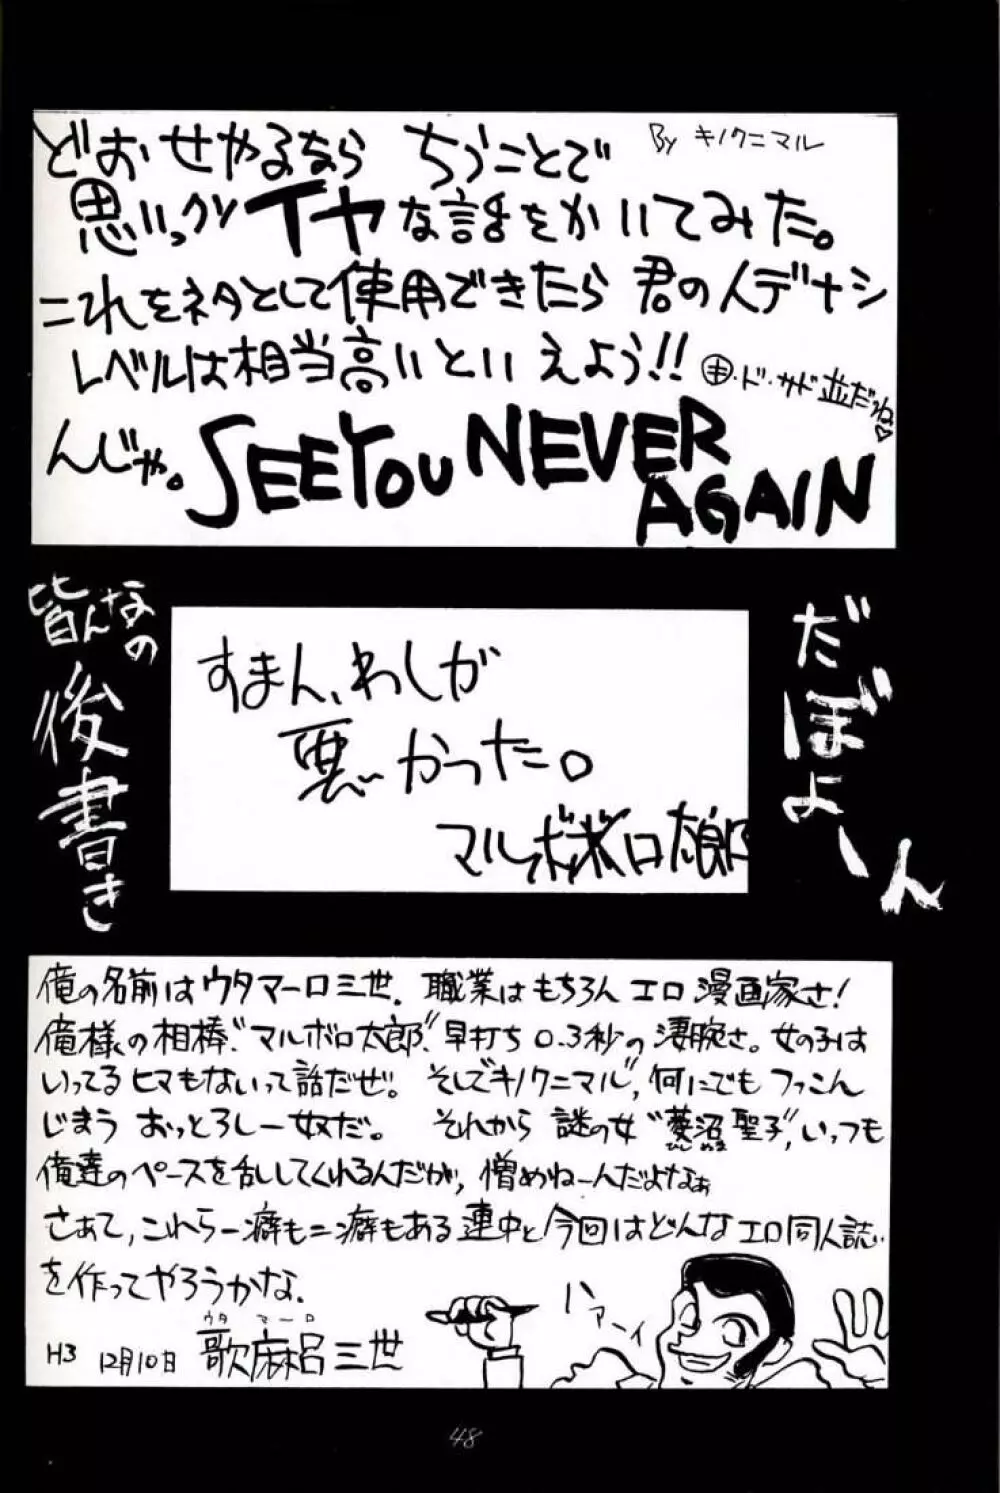 どおせやるなら ちうことで
By キノクニマル
思いっクソイヤな話をかいてみた。
これをネタとして使用できたら 君の人デナシ
レベルは相当高いといえよう!!
ド・サド並だね♡
んじゃ。SEE YOU NEVER AGAIN
だぼよーん
皆んなの
後書き
すまん、わしが
悪かった。
マルボロ太郎
俺の名前はウタマーロ三世. 職業はもちろん エロ漫画家さ!
俺様の相棒“マルボロ太郎”早打ち0.3秒の凄腕さ。女の子は
いってるヒマもないって話だぜ。そして“キノクニマル”, 何にでもつっこん
じまう おっとろしー奴だ。 それから 謎の女“菱沼聖子”, いっつも
ひし ぬま
俺達のペースを乱してくれるんだが, 憎めねーんだよなぁ
さぁて, これら一癖も二癖もある連中と今回はどんなエロ同人誌
を作ってやろうかな.
ハァーイ
ウタ マーロ
H3 12月10日 歌麻呂三世
48